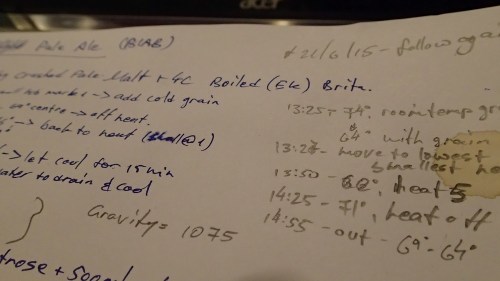 acer
Pale Ale (BIAB)
+ 21/6/15 - follow again
crushed Pale Malt + 4L Boiled (Ek) Brita.
→ add cold grain
center → off heat.
→ back to heat
13:25 - 74°, room temp gr
64° with grain
13:27 - move to lowest
smallest
→ let cool for 15 min
to drain & cool
13:50 - 66°, heat 5
14:25 - 71°, heat off
14:55 - out - 69° - 64°
Gravity = 1075
trose +